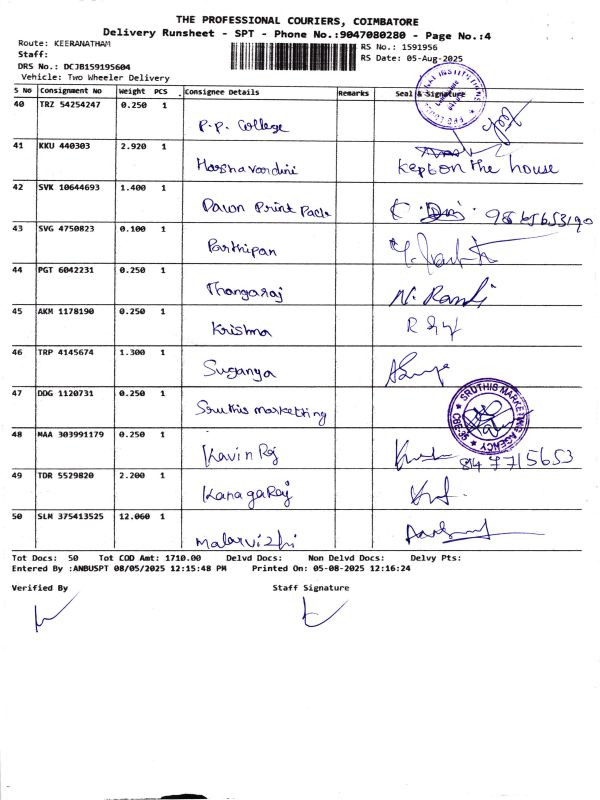 THE PROFESSIONAL COURIERS, COIMBATORE
Delivery Runsheet - SPT - Phone No.:9047080280 - Page No.:4
Route: KEERANATHAM
RS No.: 1591956
Staff:
RS Date: 05-Aug-2025
DRS No.: DCJB159195604
Vehicle: Two Wheeler Delivery
S No Consignment No Weight PCS .Consignee Details Remarks Seal & Signature
40 TRZ 54254247 0.250 1
P.P. College
41 KKU 440303 2.920 1
Harshavardini kept on the house
42 SVK 10644693 1.400 1
Dawn Print Pack
43 SVG 4750823 0.100 1
Parthipan
44 PGT 6042231 0.250 1
Thangaraj
45 AKM 1178190 0.250 1
Krishna
46 TRP 4145674 1.300 1
Suganya
47 DDG 1120731 0.250 1
Sruthis marketting
SRUTHIS MARKETING AGENCY
CBE-35
48 MAA 303991179 0.250 1
Kavin Raj
8147715653
49 TDR 5529820 2.200 1
Kanagaraj
50 SLM 375413525 12.060 1
malarvizhi
Tot Docs: 50 Tot COD Amt: 1710.00 Delvd Docs: Non Delvd Docs: Delvy Pts:
Entered By :ANBUSPT 08/05/2025 12:15:48 PM Printed On: 05-08-2025 12:16:24
Verified By Staff Signature